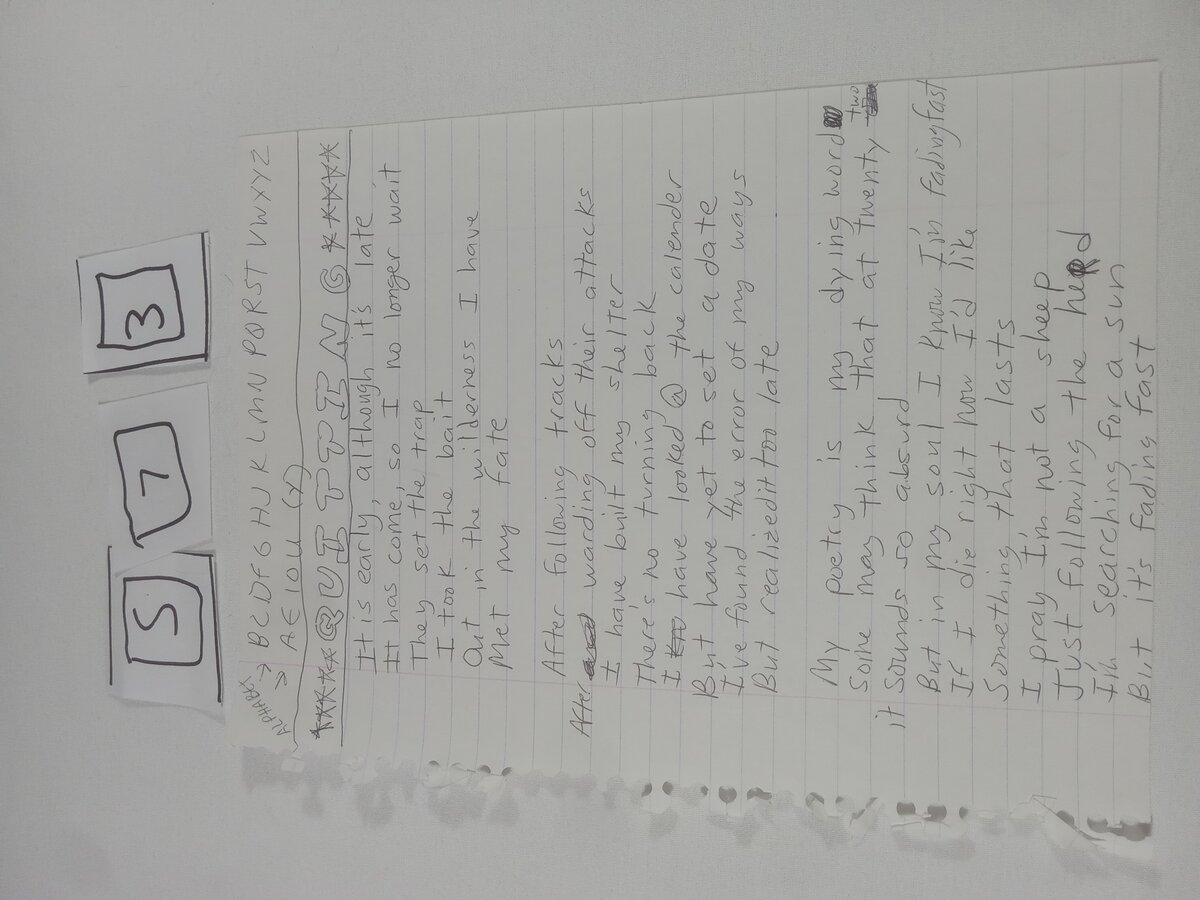 5 7 3
ALPHABK → BCDFGHJKLMNPQRSTVWXYZ
→ AEIOU (Y)
****QUITTING****
It is early, although it's late
It has come, so I no longer wait
They set the trap
I took the bait
Out in the wilderness I have
Met my fate
After following tracks
After warding off their attacks
I have built my shelter
There's no turning back
I have looked @ the calender
But have yet to set a date
I've found the error of my ways
But realized it too late
My poetry is my dying word
Some may think that at twenty two
it sounds so absurd
But in my soul I know I'm fading fast
If I die right now I'd like
Something that lasts
I pray I'm not a sheep
Just following the herd
I'm searching for a sun
But it's fading fast